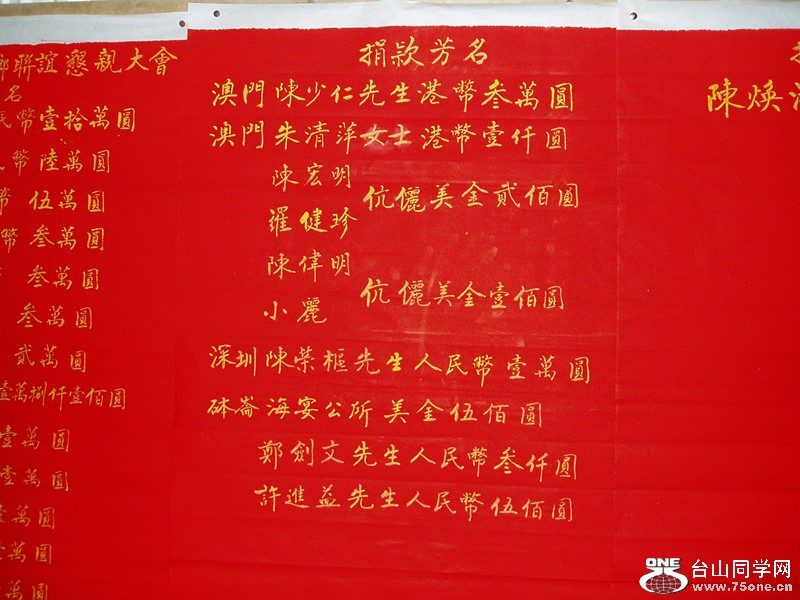 鄉聯誼懇親大會
名
民幣壹拾萬圓
幣陸萬圓
幣伍萬圓
幣叁萬圓
叁萬圓
叁萬圓
貳萬圓
壹萬捌仟壹佰圓
壹萬圓
壹萬圓
萬圓
萬圓
萬圓
捐款芳名
澳門陳少仁先生港幣叁萬圓
澳門朱清萍女士港幣壹仟圓
陳宏明
伉儷美金貳佰圓
羅健珍
陳偉明
伉儷美金壹佰圓
小麗
深圳陳榮樞先生人民幣壹萬圓
砵崙海宴公所美金伍佰圓
鄭劍文先生人民幣叁仟圓
許進益先生人民幣伍佰圓
陳煥
ONE
台山同学网
www.75one.cn